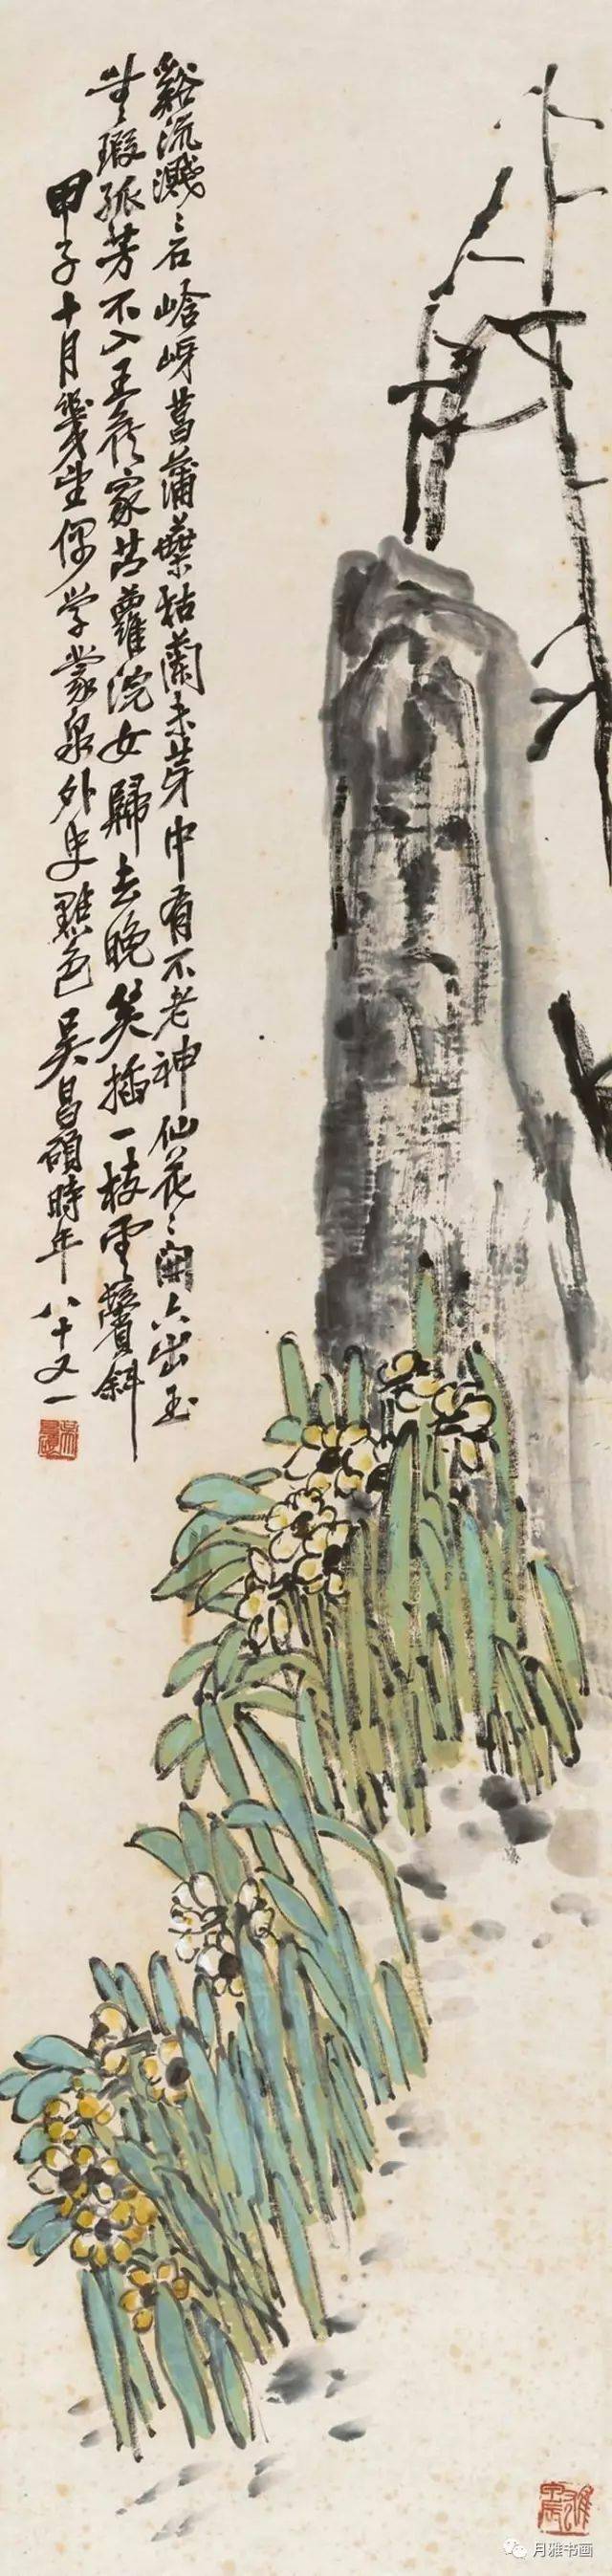 谿流濺〻石㟏岈菖蒲葉枯蘭未芽中有不老神仙花〻開六出玉
無瑕孤芳不入王侯家苧蘿浣女歸去晚笑插一枝雲鬢斜
甲子十月幾望偶學蒙泉外史點色 吳昌碩時年八十又一
月雅书画